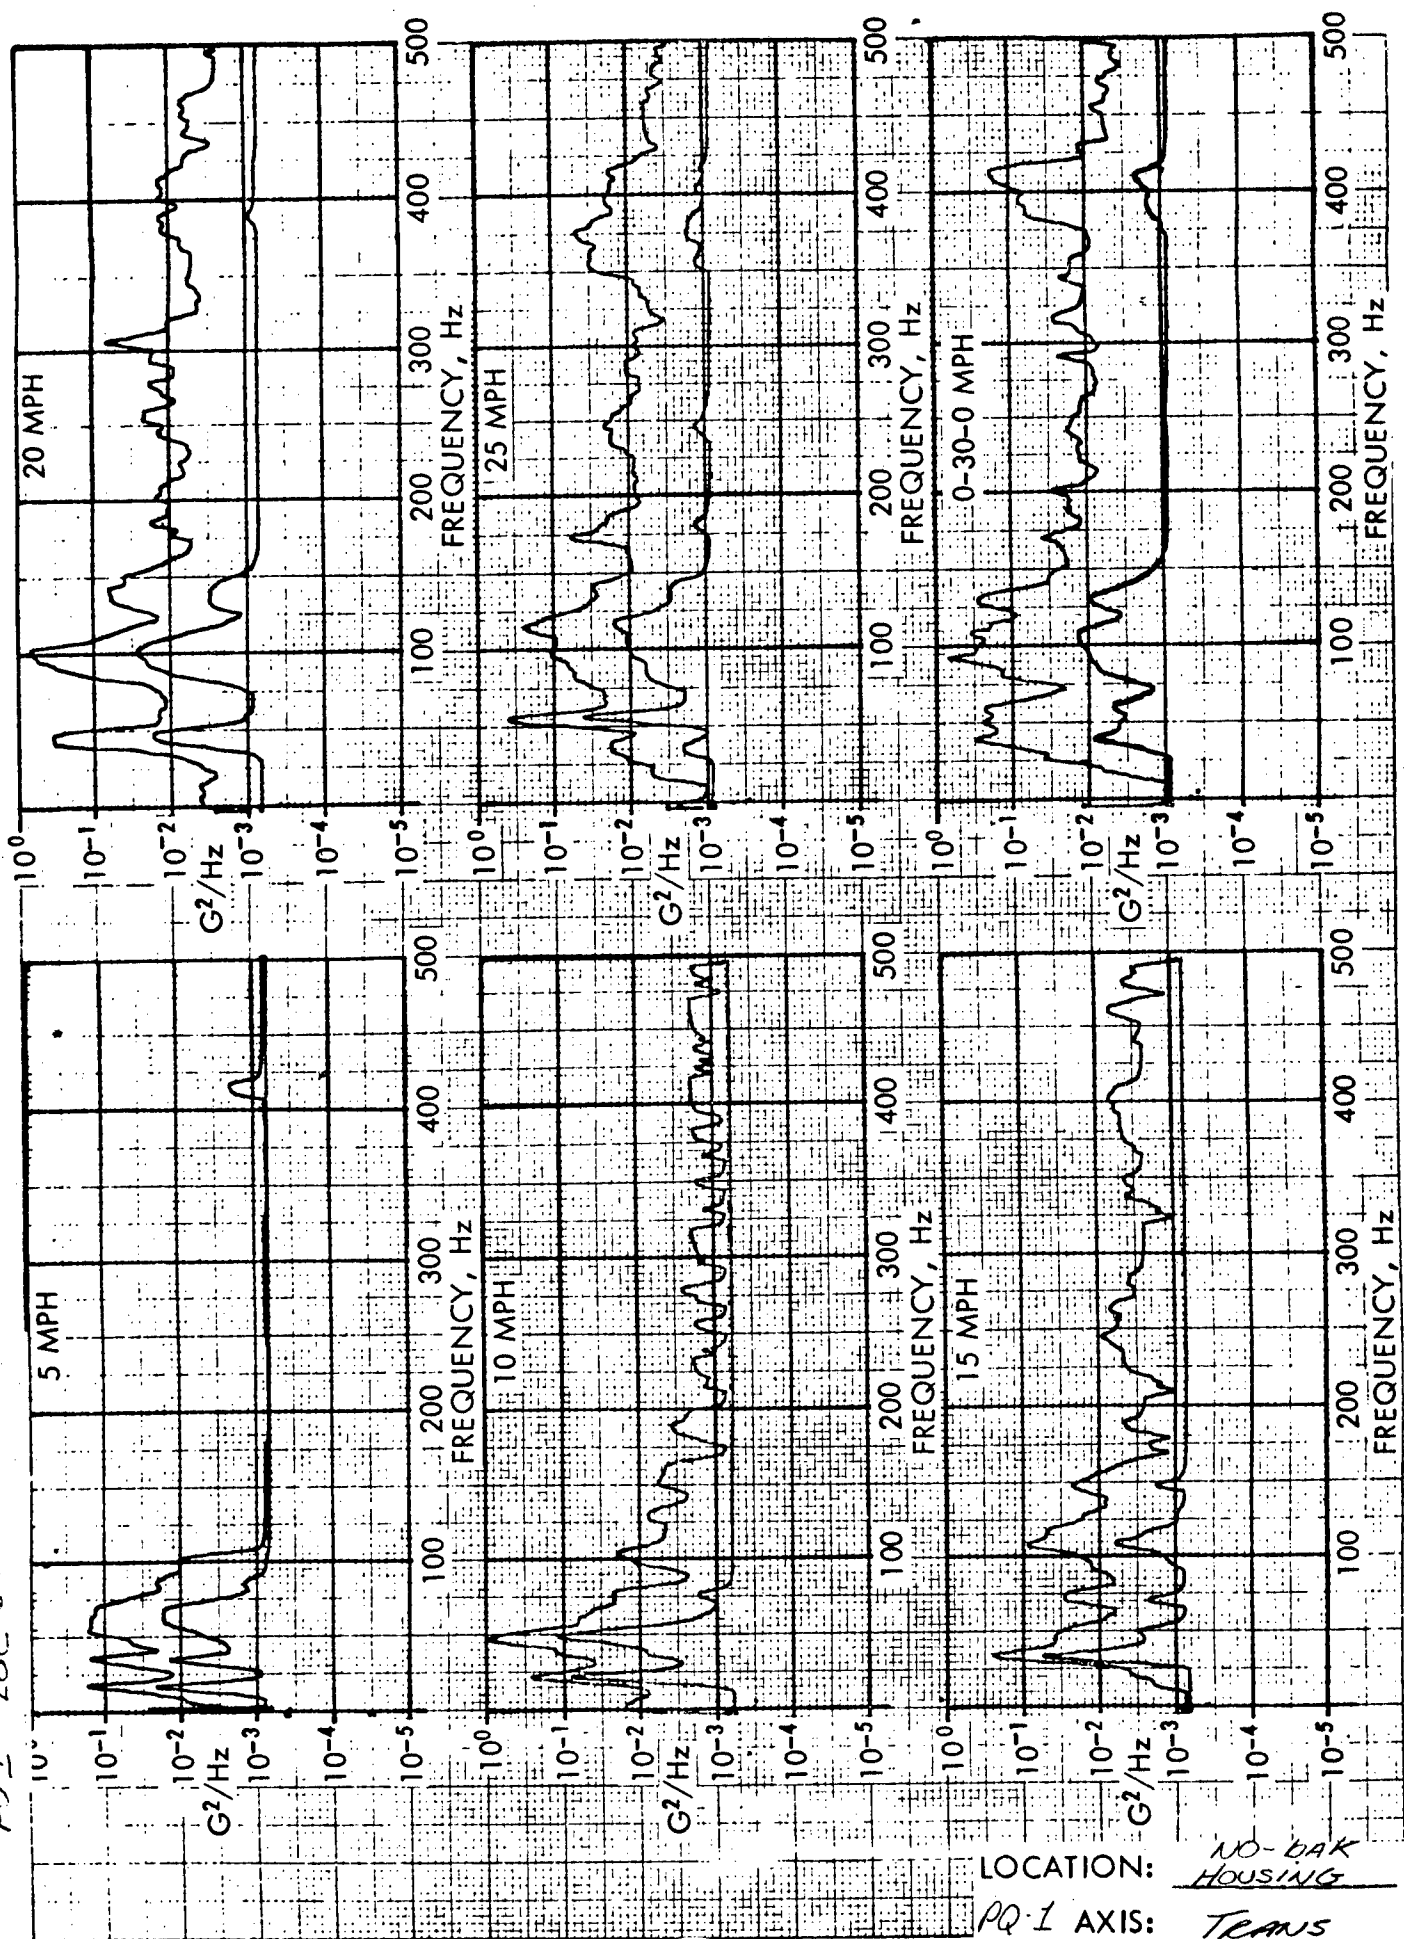 5 MPH
10⁻¹
10⁻²
G²/Hz
10⁻³
10⁻⁵
100
200
300
400
500
FREQUENCY, Hz
20 MPH
10⁰
10⁻¹
10⁻²
G²/Hz
10⁻³
10⁻⁴
10⁻⁵
100
200
300
400
500
FREQUENCY, Hz
10 MPH
10⁰
10⁻¹
10⁻²
G²/Hz
10⁻³
10⁻⁴
10⁻⁵
100
200
300
400
500
FREQUENCY, Hz
25 MPH
10⁰
10⁻¹
10⁻²
G²/Hz
10⁻³
10⁻⁴
10⁻⁵
100
200
300
400
500
FREQUENCY, Hz
15 MPH
10⁰
10⁻¹
10⁻²
G²/Hz
10⁻³
10⁻⁴
10⁻⁵
100
200
300
400
500
FREQUENCY, Hz
0-30-0 MPH
10⁰
10⁻¹
10⁻²
G²/Hz
10⁻³
10⁻⁴
10⁻⁵
100
200
300
400
500
FREQUENCY, Hz
LOCATION: NO-BAK
HOUSING
PQ-1 AXIS: TRANS